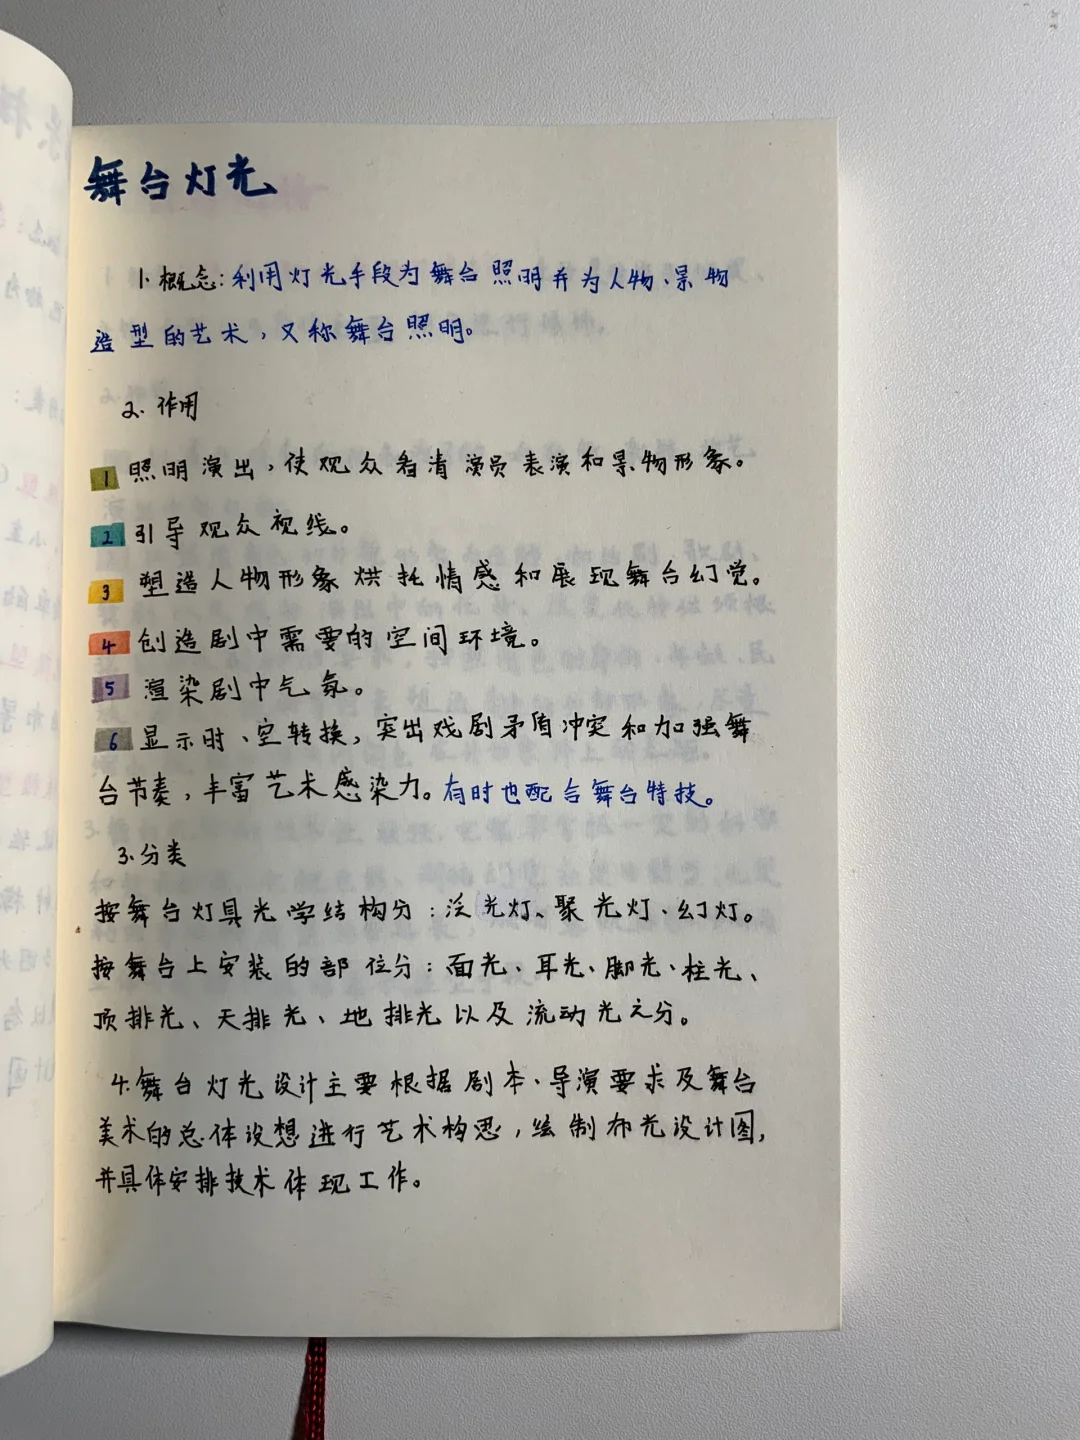 舞台灯光
1.概念:利用灯光手段为舞台照明并为人物、景物
造型的艺术,又称舞台照明。
2.作用
1 照明演出,使观众看清演员表演和景物形象。
2 引导观众视线。
3 塑造人物形象烘托情感和展现舞台幻觉。
4 创造剧中需要的空间环境。
5 渲染剧中气氛。
6 显示时、空转换,突出戏剧矛盾冲突和加强舞
台节奏,丰富艺术感染力。有时也配合舞台特技。
3.分类
按舞台灯具光学结构分:泛光灯、聚光灯、幻灯。
按舞台上安装的部位分:面光、耳光、脚光、柱光、
顶排光、天排光、地排光以及流动光之分。
4.舞台灯光设计主要根据剧本、导演要求及舞台
美术的总体设想进行艺术构思,绘制布光设计图,
并具体安排技术体现工作。